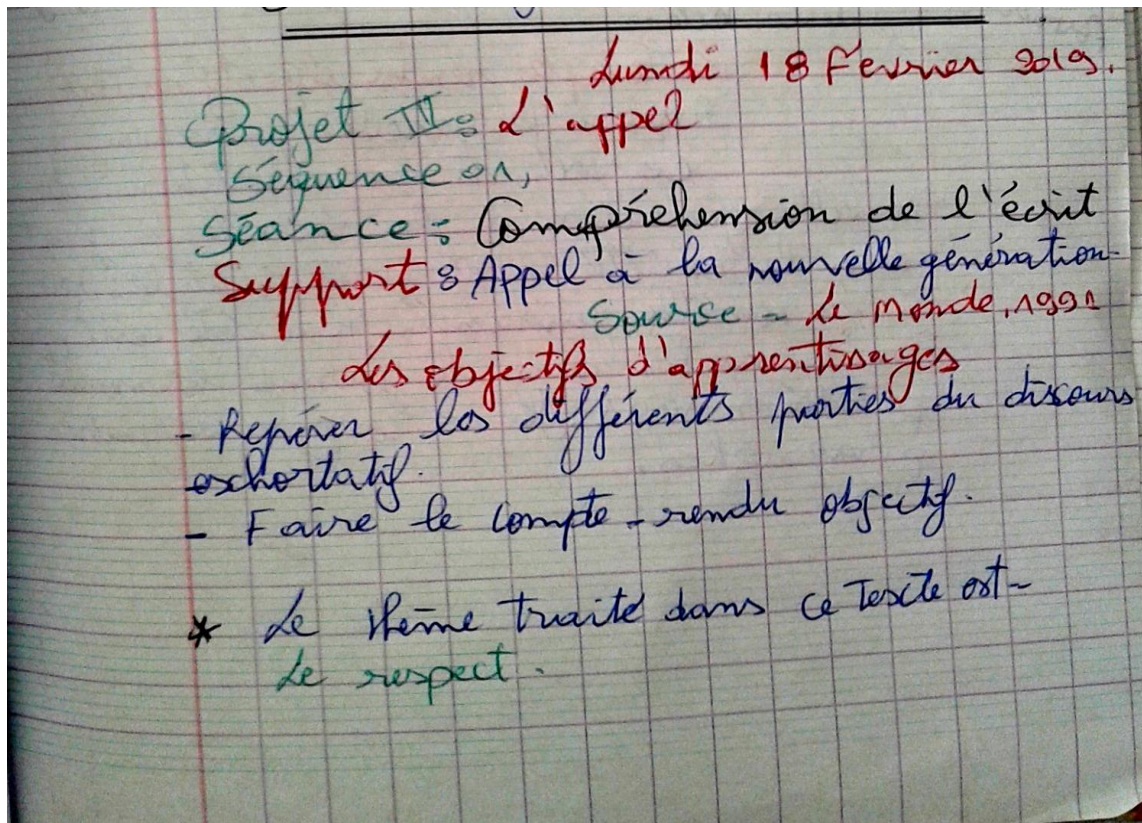 Lundi 18 Février 2019.
Projet III: L'appel
Séquence 01,
Séance: Compréhension de l'écrit
Support: Appel à la nouvelle génération.
Source - Le Monde, 1991
Les objectifs d'apprentissages
- Repérer les différents parties du discours
exhortatif.
- Faire le compte-rendu objectif.
* Le thème traité dans ce texte est-
Le respect.